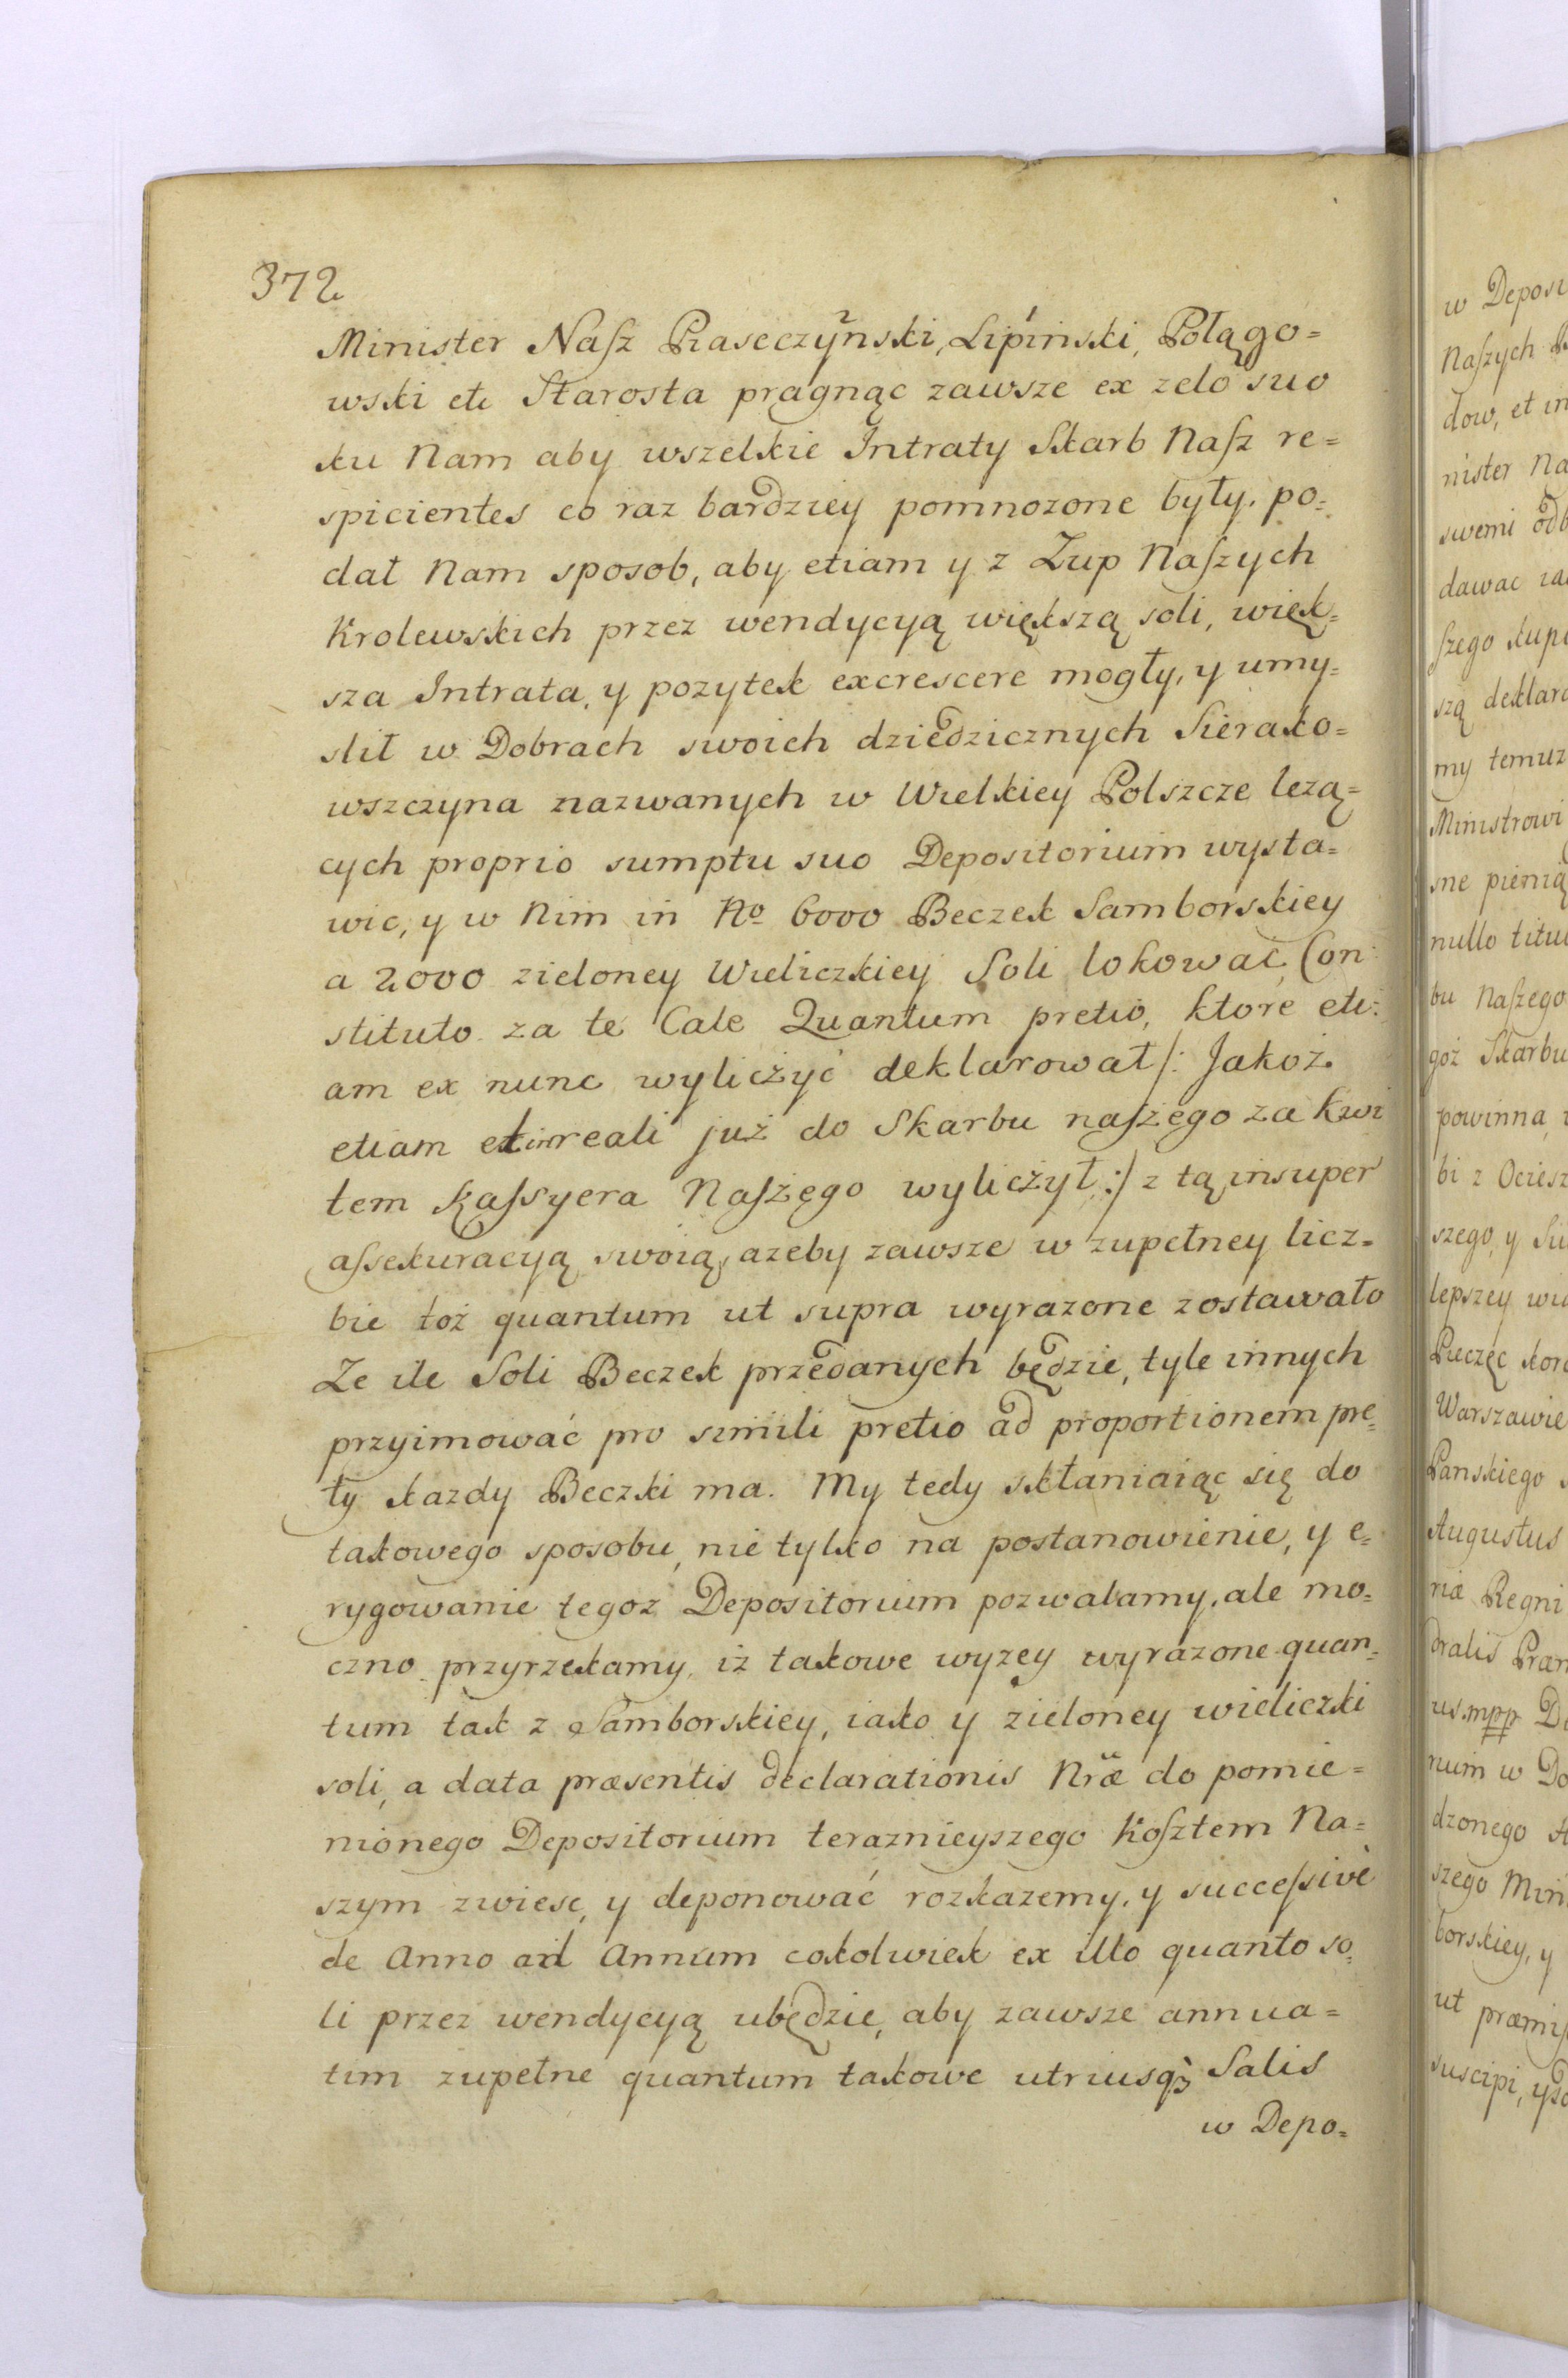 372
Minister Naſz Piaseczyński, Lipiński, Połągo=
wski etc Starosta pragnąc zawsze ex zelo suo
ku Nam aby wszelkie Intraty Skarb Naſz re=
spicientes co raz bardziey pomnozone były, po=
dał Nam sposob, aby etiam y z Zup Naſzych
Krolewskich przez wendycyą większą soli, więk=
sza Intrata, y pozytek excrescere mogły, y umy=
slił w Dobrach swoich dziedzicznych Sierako=
wszczyna nazwanych w Wielkiey Polszcze lezą=
cych proprio sumptu suo Depositorium wysta=
wic, y w Nim in No 6000 Beczek Samborskiey
a 2000 zieloney Wieliczkiey Soli lokować, Con=
stituto za te Cale Quantum pretio, ktore eti=
am ex nunc wyliczyć deklarował /: Jakoż
etiam et in reali już do Skarbu naſzego za kwi
tem Kaſsyera Naſzego wyliczył :/ z tą insuper
aſsekuracyą swoią, azeby zawsze w zupełney licz=
bie toż quantum ut supra wyrazone zostawało
Ze ile Soli Beczek przedanych będzie, tyle innych
przyimować pro simili pretio ad proportionem pre=
ty kazdy Beczki ma. My tedy skłaniaiąc się do
takowego sposobu, nie tylko na postanowienie, y e=
rygowanie tegoz Depositorium pozwalamy, ale mo=
czno przyrzekamy, iż takowe wyzey wyrazone quan=
tum tak z Samborskiey, iako y zieloney wieliczki
soli, a data præsentis declarationis Nræ do pomie=
nionego Depositorium teraznieyszego Koſztem Na=
szym zwiesc, y deponować rozkazemy, y succeſsivè
de Anno ad Annum cokolwiek ex illo quanto so=
li przez wendycyą ubędzie, aby zawsze annua=
tim zupełne quantum takowe utriusqꝫ Salis
w Depo=
w Deposi
Naſzych
dow, et in
nister Na
swemi odb
dawac
ſzego kup
szą deklara
my temuz
Ministrowi
sne pienią
nullo titu
bu Naſzego
goż Skarbu
powinna,
bi z Ociesz
szego, y Su
lepszey wia
Pieczęc kor
Warszawie
Panskiego
Augustus
niæ Regni
dralis Præ
us mpp D
rium w Do
dzonego
szego Min
borskiey, y
ut præmiſ
suscipi,